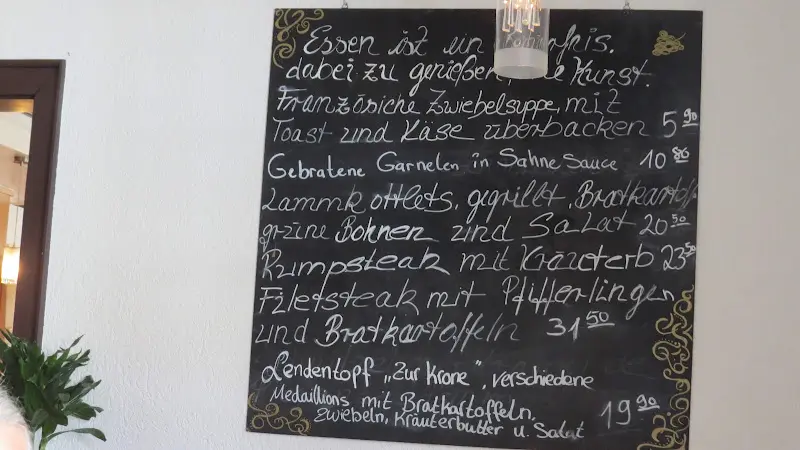 Essen ist ein
dabei zu genießen, Kunst.
Französiche Zwiebelsuppe, mit
Toast und Käse überbacken 5 90
Gebratene Garnelen in Sahne Sauce 10 80
Lammkottlets, gegrillt, Bratkartoff
grüne Bohnen und Salat 20 50
Rumpsteak mit Kräuterb 23 50
Filetsteak mit Pfifferlingen
und Bratkartoffeln 31 50
Lendentopf „Zur Krone", verschiedene
Medaillions mit Bratkartoffeln,
Zwiebeln, Kräuterbutter u. Salat 19 90